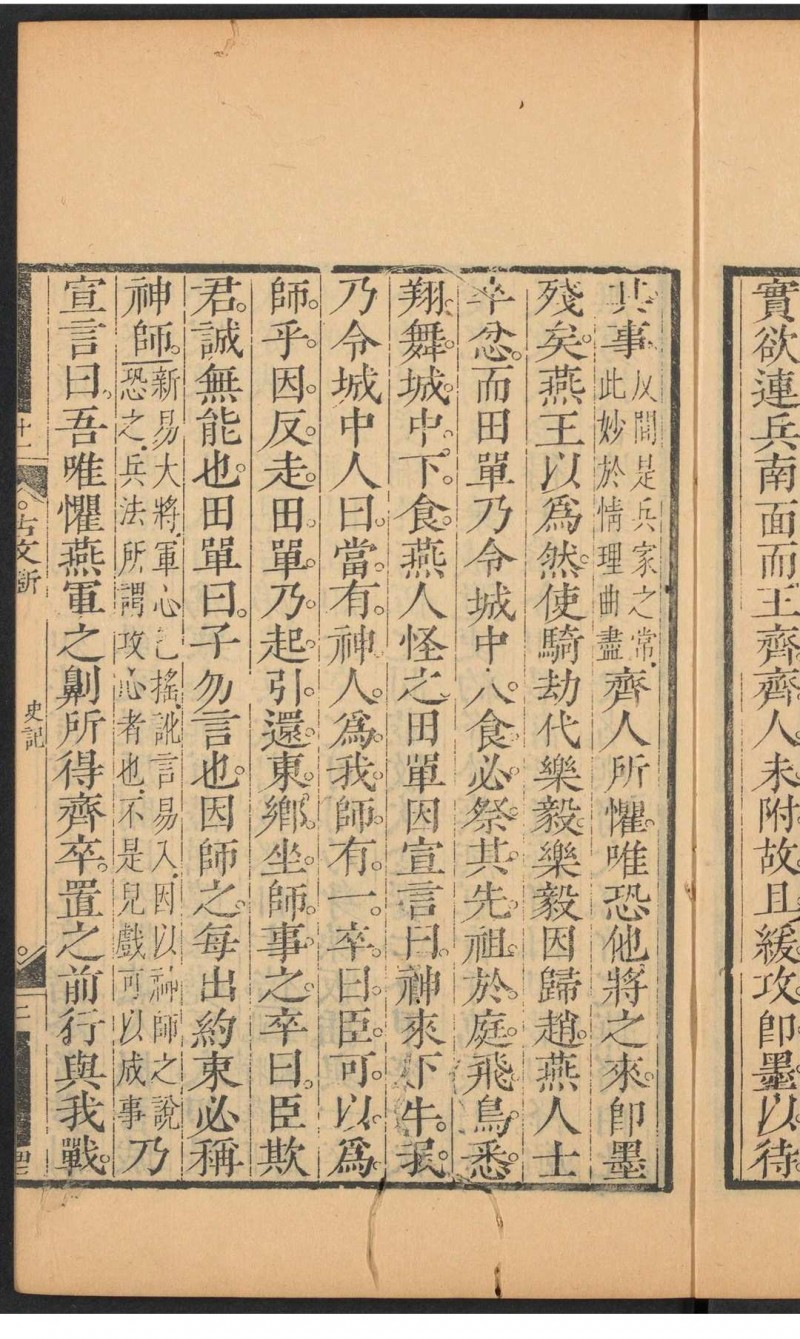 實欲連兵南面而王齊齊人未附故且緩攻即墨以待
其事
反間是兵家之常
此妙於情理曲盡
齊人所懼唯恐他將之來即墨
殘矣燕王以爲然使騎劫代樂毅樂毅因歸趙燕人士
卒忿而田單乃令城中人食必祭其先祖於庭飛鳥悉
翔舞城中下食燕人怪之田單因宣言曰神來下牛
乃令城中人曰當有神人爲我師有一卒曰臣可以爲
師乎因反走田單乃起引還東鄉坐師事之卒曰臣欺
君誠無能也田單曰子勿言也因師之每出約束必稱
神師
新易大將軍心已搖訛言易入因以神師之說
恐之兵法所謂攻心者也不是兒戲可以成事
乃
宣言曰吾唯懼燕軍之劓所得齊卒置之前行與我戰
古文
史記